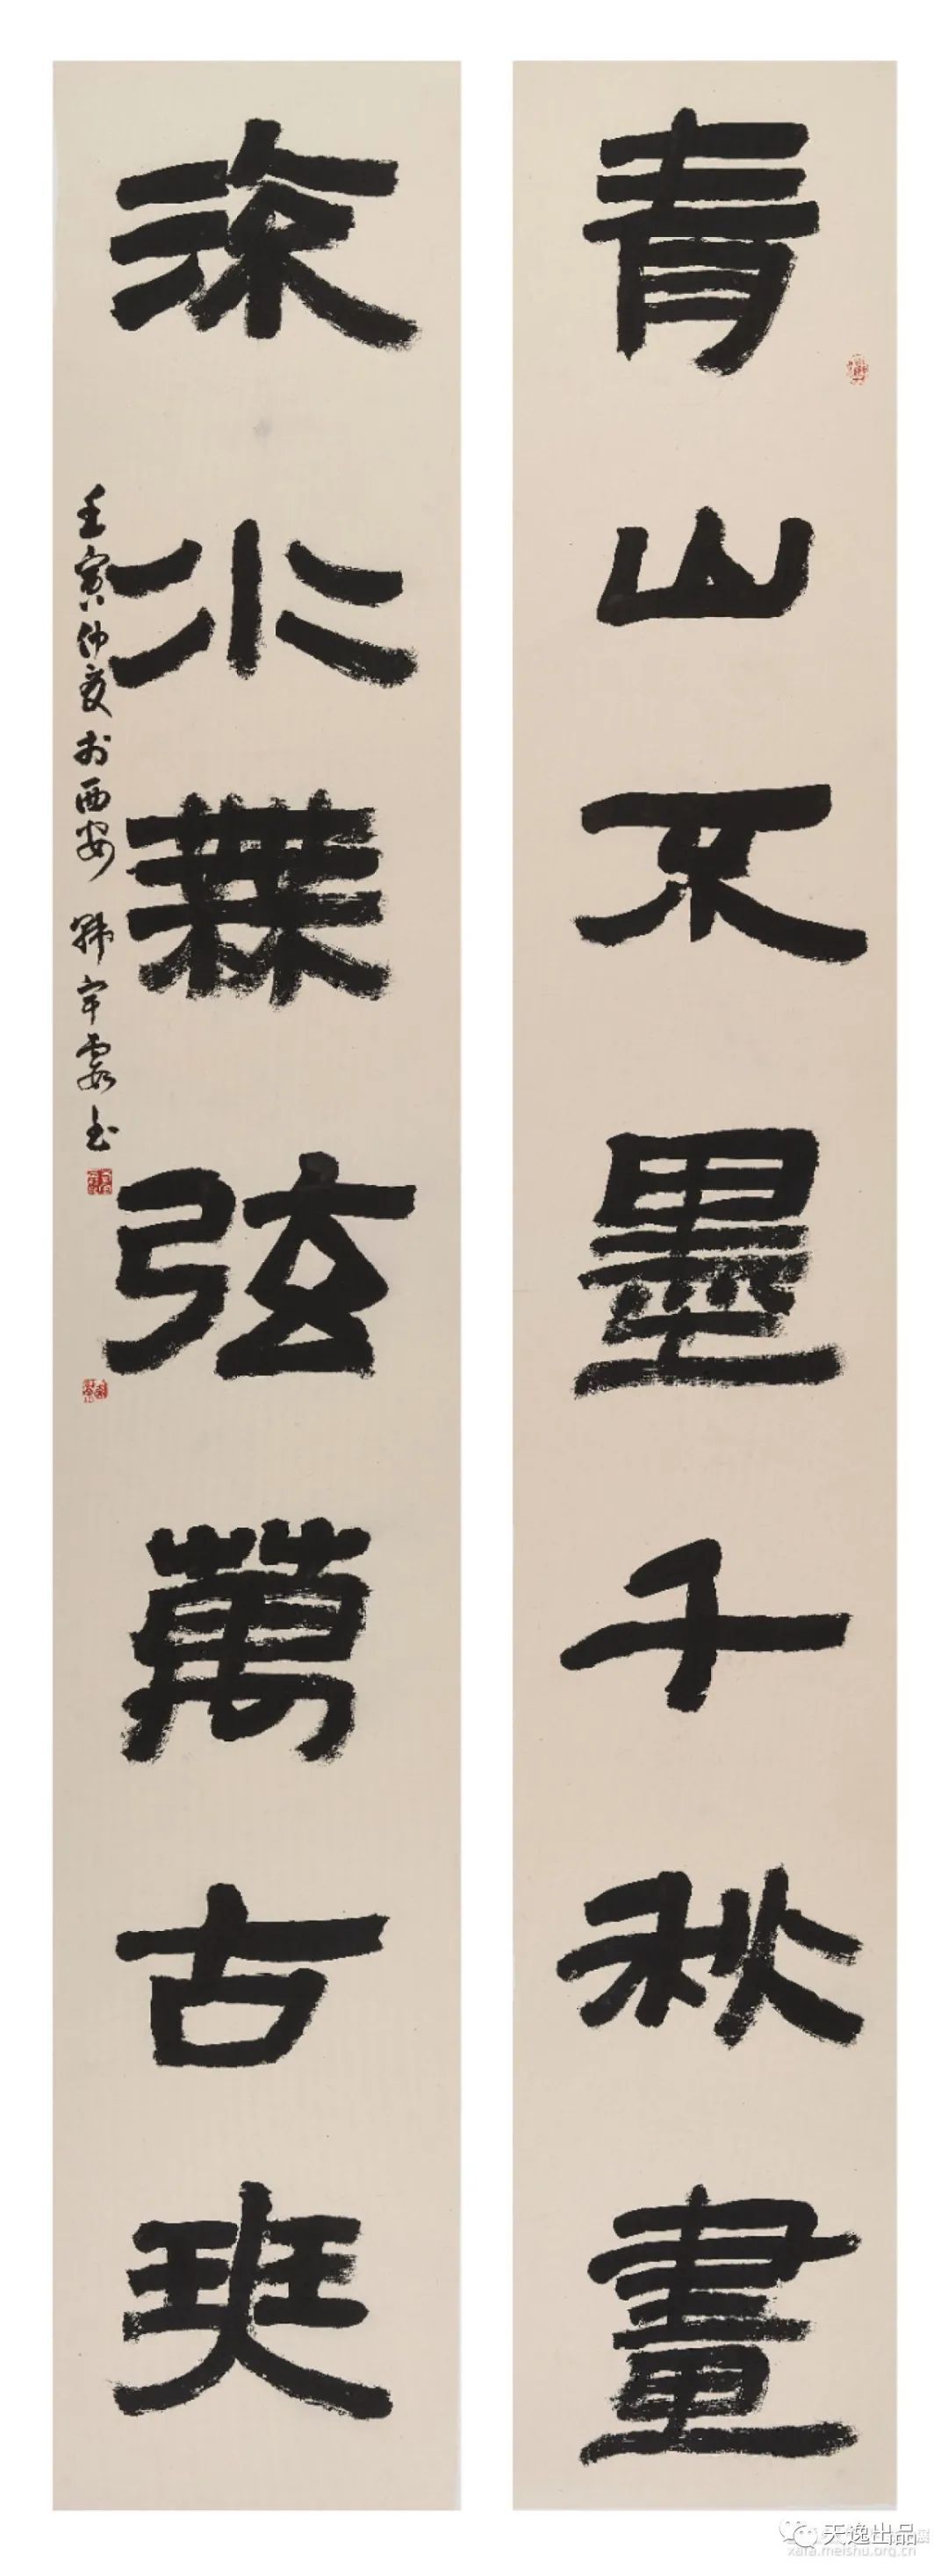 青山不墨千秋畫
流水無弦萬古琴
壬寅仲夏於西安
天逸出品
xafa.meishu.org.cn